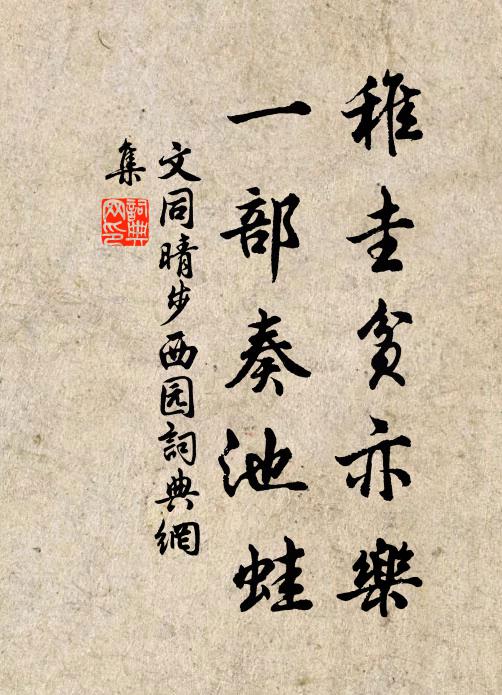 稚圭貧亦樂
一部奏池蛙
文同晴步西园詞典網
集
詞典
网印